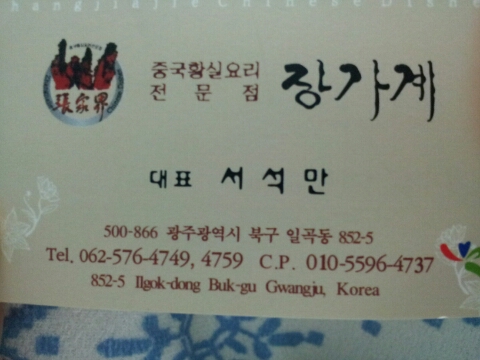 hangjiajie Chinese Dishe
張家界
중국황실요리
전문점
장가계
대표 서석만
500-866 광주광역시 북구 일곡동 852-5
Tel. 062-576-4749, 4759 C.P. 010-5596-4737
852-5 Ilgok-dong Buk-gu Gwangju, Korea